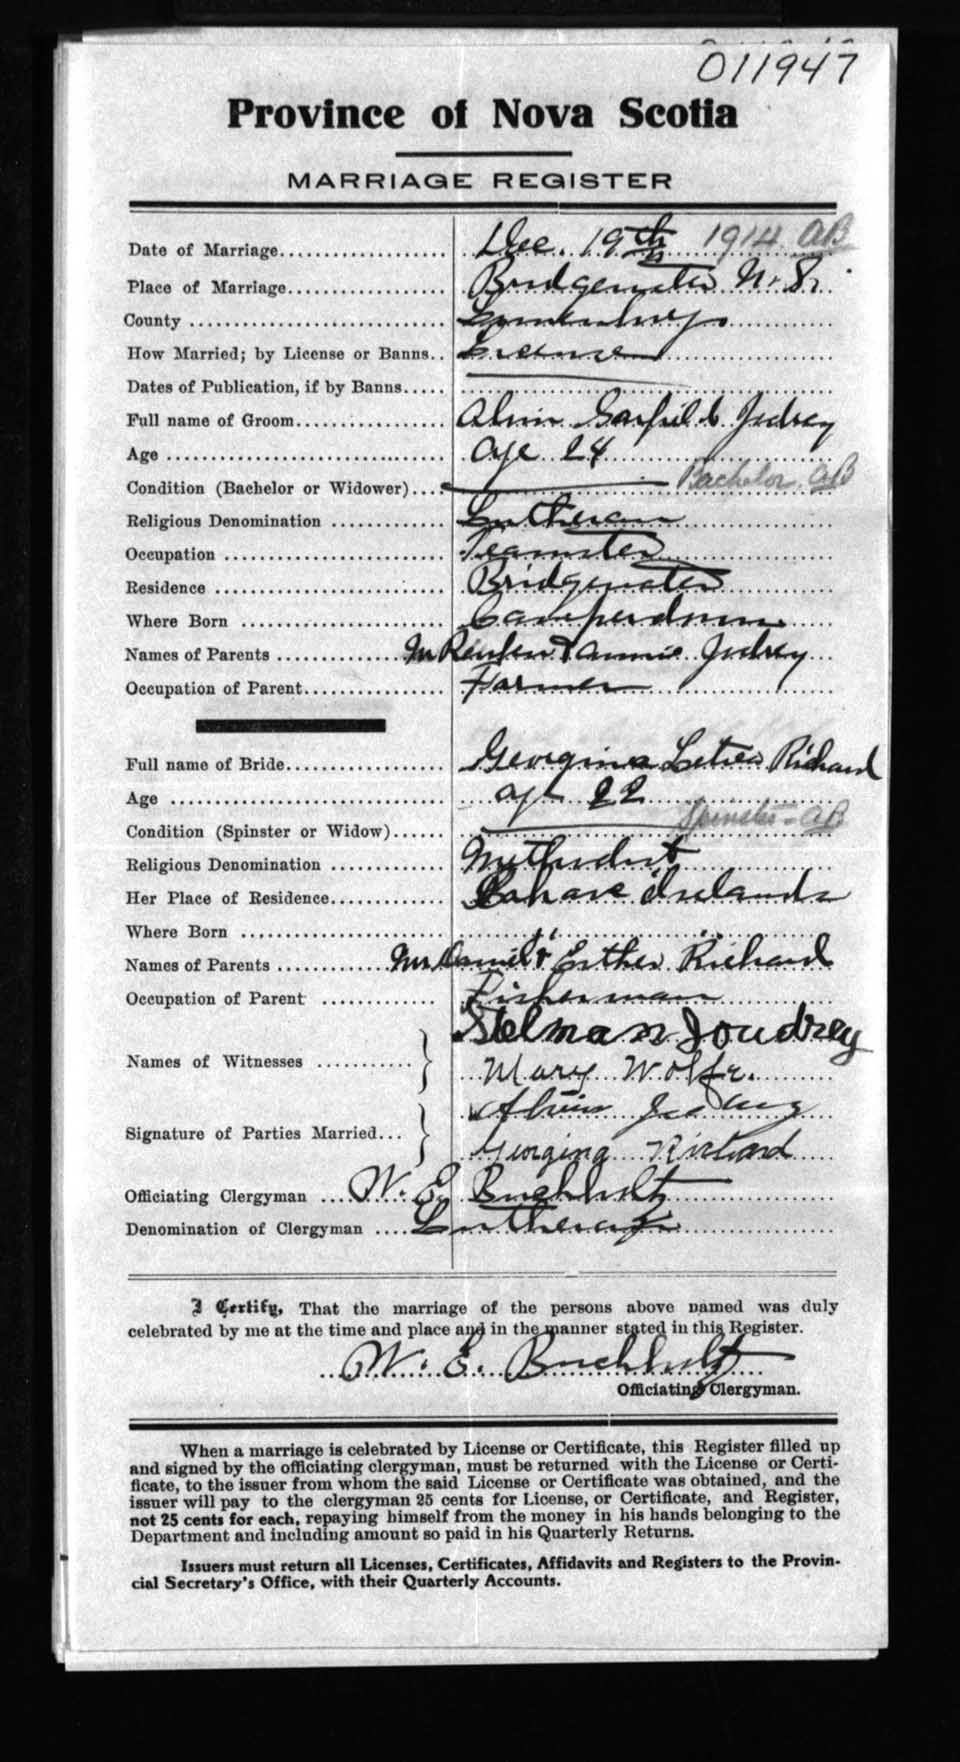 011947
Province of Nova Scotia
MARRIAGE REGISTER
Date of Marriage.................... Dec. 19th 1914 AB
Place of Marriage................... Bridgewater N.S.
County ............................. Lunenburg
How Married; by License or Banns.. License
Dates of Publication, if by Banns.....
Full name of Groom.................. Alvin Garfield Judrey
Age ................................ Age 24
Condition (Bachelor or Widower).... Bachelor AB
Religious Denomination ............. Lutheran
Occupation ......................... Teamster
Residence .......................... Bridgewater
Where Born ......................... Camperdown
Names of Parents ............... Mr Reuben & Annie Judrey
Occupation of Parent................. Farmer
Full name of Bride................... Georgina Letica Richard
Age ................................ age 22
Condition (Spinster or Widow)...... Spinster - AB
Religious Denomination ............. Methodist
Her Place of Residence............. Lahave Islands
Where Born ......................... " "
Names of Parents ............ Mr Daniel & Esther Richard
Occupation of Parent .............. Fisherman
Names of Witnesses ............ Stelman Joudrey
Mary Wolfe.
Signature of Parties Married... Alvin Judrey
Georgina Richard
Officiating Clergyman .... W. E. Buchholtz
Denomination of Clergyman .... Lutheran
I Certify, That the marriage of the persons above named was duly
celebrated by me at the time and place and in the manner stated in this Register.
W. E. Buchholtz
Officiating Clergyman.
When a marriage is celebrated by License or Certificate, this Register filled up
and signed by the officiating clergyman, must be returned with the License or Certi-
ficate, to the issuer from whom the said License or Certificate was obtained, and the
issuer will pay to the clergyman 25 cents for License, or Certificate, and Register,
not 25 cents for each, repaying himself from the money in his hands belonging to the
Department and including amount so paid in his Quarterly Returns.
Issuers must return all Licenses, Certificates, Affidavits and Registers to the Provin-
cial Secretary's Office, with their Quarterly Accounts.